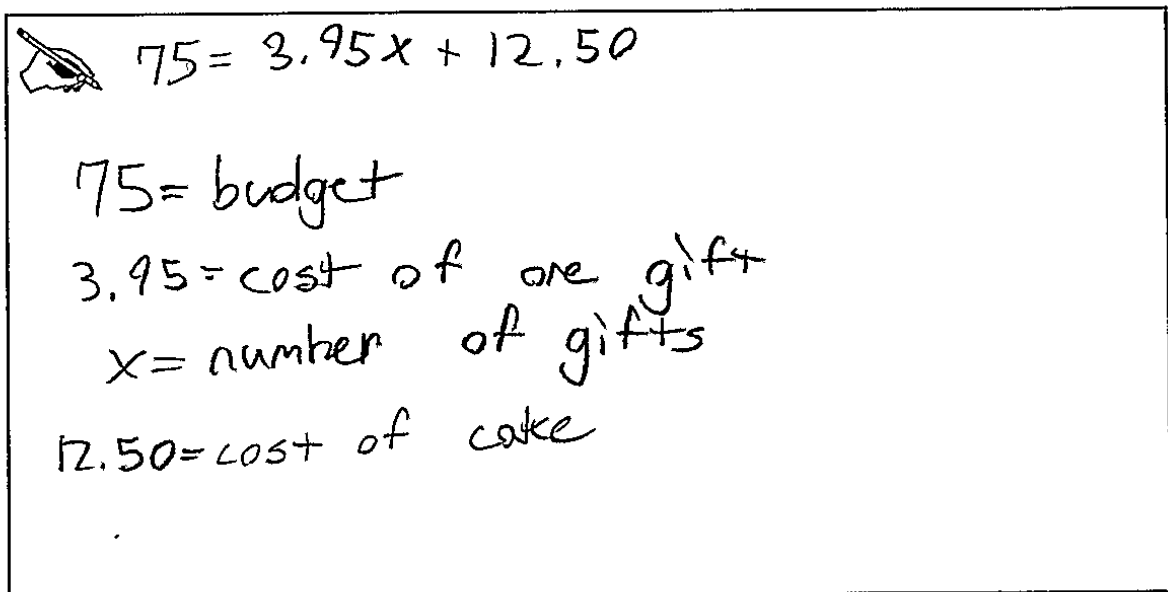 75 = 3.95x + 12.50
75 = budget
3.95 = cost of one gift
x = number of gifts
12.50 = cost of cake